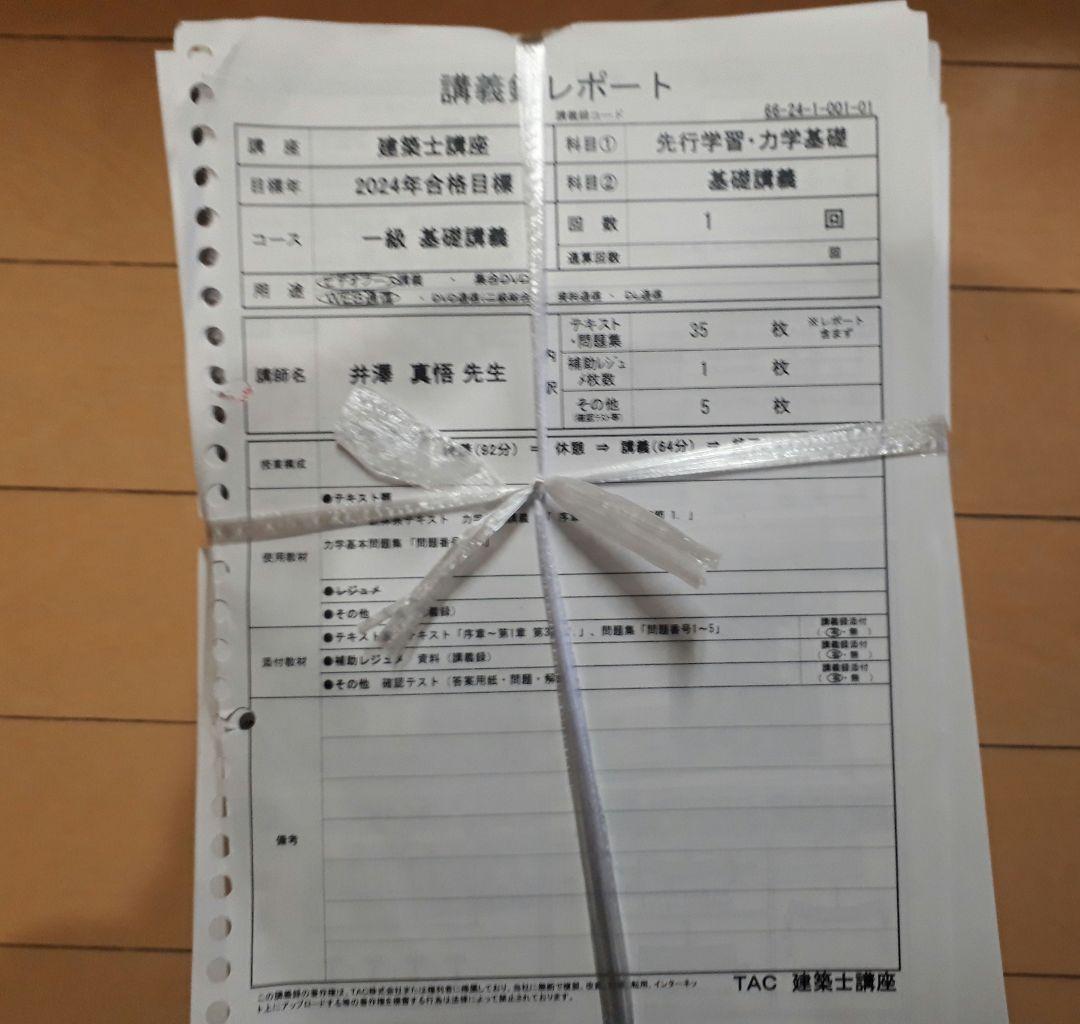 講義録レポート
講義録コード 66-24-1-001-01
講 座 建築士講座 科目① 先行学習・力学基礎
目標年 2024年合格目標 科目② 基礎講義
コース 一級 基礎講義 回 数 1 回
通算回数 回
用 途 ビデオブース講義 、 集合DVD
WEB通信 、 DVD通信 資料通信 、 DL通信
講師名 井澤 真悟 先生 内訳
テキスト・問題集 35 枚 ※レポート含まず
補助レジュメ枚数 1 枚
その他(確認テスト等) 5 枚
授業構成 (92分) ⇒ 休憩 ⇒ 講義(64分) ⇒
使用教材 ●テキスト類
テキスト 力学 講義 「序章 1.」
力学基本問題集「問題番号
●レジュメ
●その他
添付教材 ●テキスト テキスト「序章~第1章 第3 」、問題集「問題番号1~5」 講義録添付(有・無 )
●補助レジュメ 資料(講義録) 講義録添付(有・無 )
●その他 確認テスト(答案用紙・問題・解 講義録添付(有・無 )
備考
TAC 建築士講座
この講義録の著作権は、TAC株式会社または権利者に帰属しており、当社に無断で複製、改変、 転用、インターネッ
ト上にアップロードする等の著作権を侵害する行為は法律によって禁止されております。